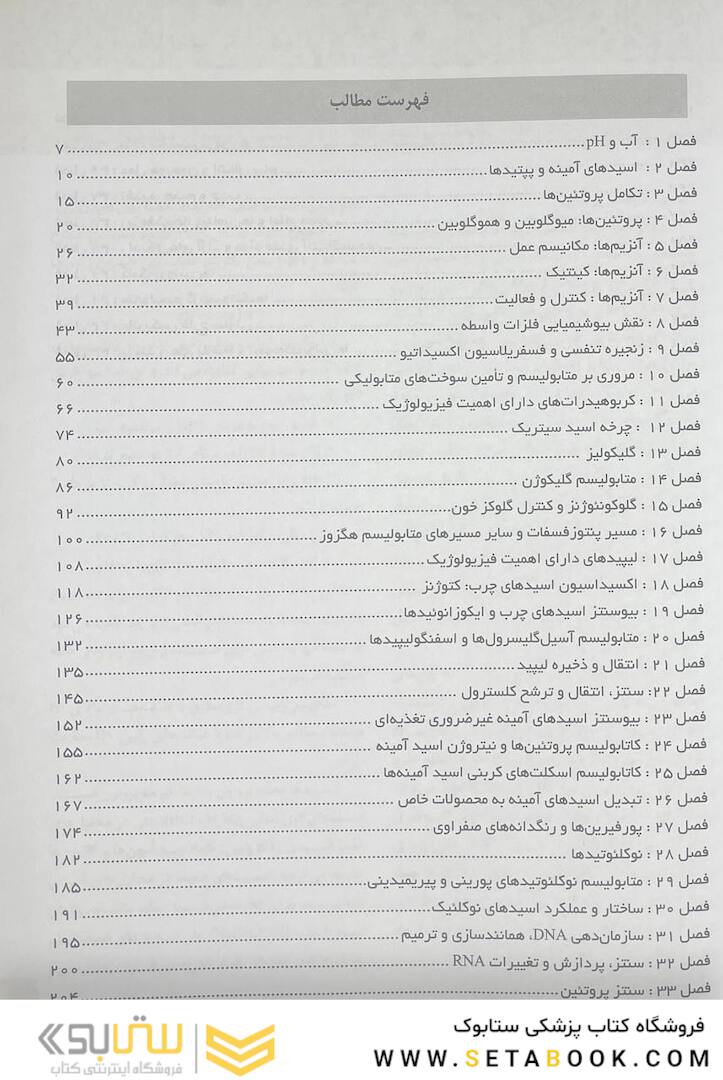 فهرست مطالب
فصل ۱ : آب و pH ........ ۷
فصل ۲ : اسیدهای آمینه و پپتیدها ........ ۱۰
فصل ۳ : تکامل پروتئین‌ها ........ ۱۵
فصل ۴ : پروتئین‌ها: میوگلوبین و هموگلوبین ........ ۲۰
فصل ۵ : آنزیم‌ها: مکانیسم عمل ........ ۲۶
فصل ۶ : آنزیم‌ها: کینتیک ........ ۳۲
فصل ۷ : آنزیم‌ها : کنترل و فعالیت ........ ۳۹
فصل ۸ : نقش بیوشیمیایی فلزات واسطه ........ ۴۳
فصل ۹ : زنجیره تنفسی و فسفریلاسیون اکسیداتیو ........ ۵۵
فصل ۱۰ : مروری بر متابولیسم و تأمین سوخت‌های متابولیکی ........ ۶۰
فصل ۱۱ : کربوهیدرات‌های دارای اهمیت فیزیولوژیک ........ ۶۶
فصل ۱۲ : چرخه اسید سیتریک ........ ۷۴
فصل ۱۳ : گلیکولیز ........ ۸۰
فصل ۱۴ : متابولیسم گلیکوژن ........ ۸۶
فصل ۱۵ : گلوکونئوژنز و کنترل گلوکز خون ........ ۹۲
فصل ۱۶ : مسیر پنتوزفسفات و سایر مسیرهای متابولیسم هگزوز ........ ۱۰۰
فصل ۱۷ : لیپیدهای دارای اهمیت فیزیولوژیک ........ ۱۰۸
فصل ۱۸ : اکسیداسیون اسیدهای چرب: کتوژنز ........ ۱۱۸
فصل ۱۹ : بیوسنتز اسیدهای چرب و ایکوزانوئیدها ........ ۱۲۶
فصل ۲۰ : متابولیسم آسیل‌گلیسرول‌ها و اسفنگولیپیدها ........ ۱۳۲
فصل ۲۱ : انتقال و ذخیره لیپید ........ ۱۳۵
فصل ۲۲: سنتز، انتقال و ترشح کلسترول ........ ۱۴۵
فصل ۲۳ : بیوسنتز اسیدهای آمینه غیرضروری تغذیه‌ای ........ ۱۵۲
فصل ۲۴ : کاتابولیسم پروتئین‌ها و نیتروژن اسید آمینه ........ ۱۵۵
فصل ۲۵ : کاتابولیسم اسکلت‌های کربنی اسید آمینه‌ها ........ ۱۶۲
فصل ۲۶ : تبدیل اسیدهای آمینه به محصولات خاص ........ ۱۶۷
فصل ۲۷ : پورفیرین‌ها و رنگدانه‌های صفراوی ........ ۱۷۴
فصل ۲۸ : نوکلئوتیدها ........ ۱۸۲
فصل ۲۹ : متابولیسم نوکلئوتیدهای پورینی و پیریمیدینی ........ ۱۸۵
فصل ۳۰ : ساختار و عملکرد اسیدهای نوکلئیک ........ ۱۹۱
فصل ۳۱ : سازمان‌دهی DNA، همانندسازی و ترمیم ........ ۱۹۵
فصل ۳۲ : سنتز، پردازش و تغییرات RNA ........ ۲۰۰
فصل ۳۳ : سنتز پروتئین ........ ۲۰۴
فروشگاه کتاب پزشکی ستابوک
WWW.SETABOOK.COM
ستابوک
فروشگاه اینترنتی کتاب